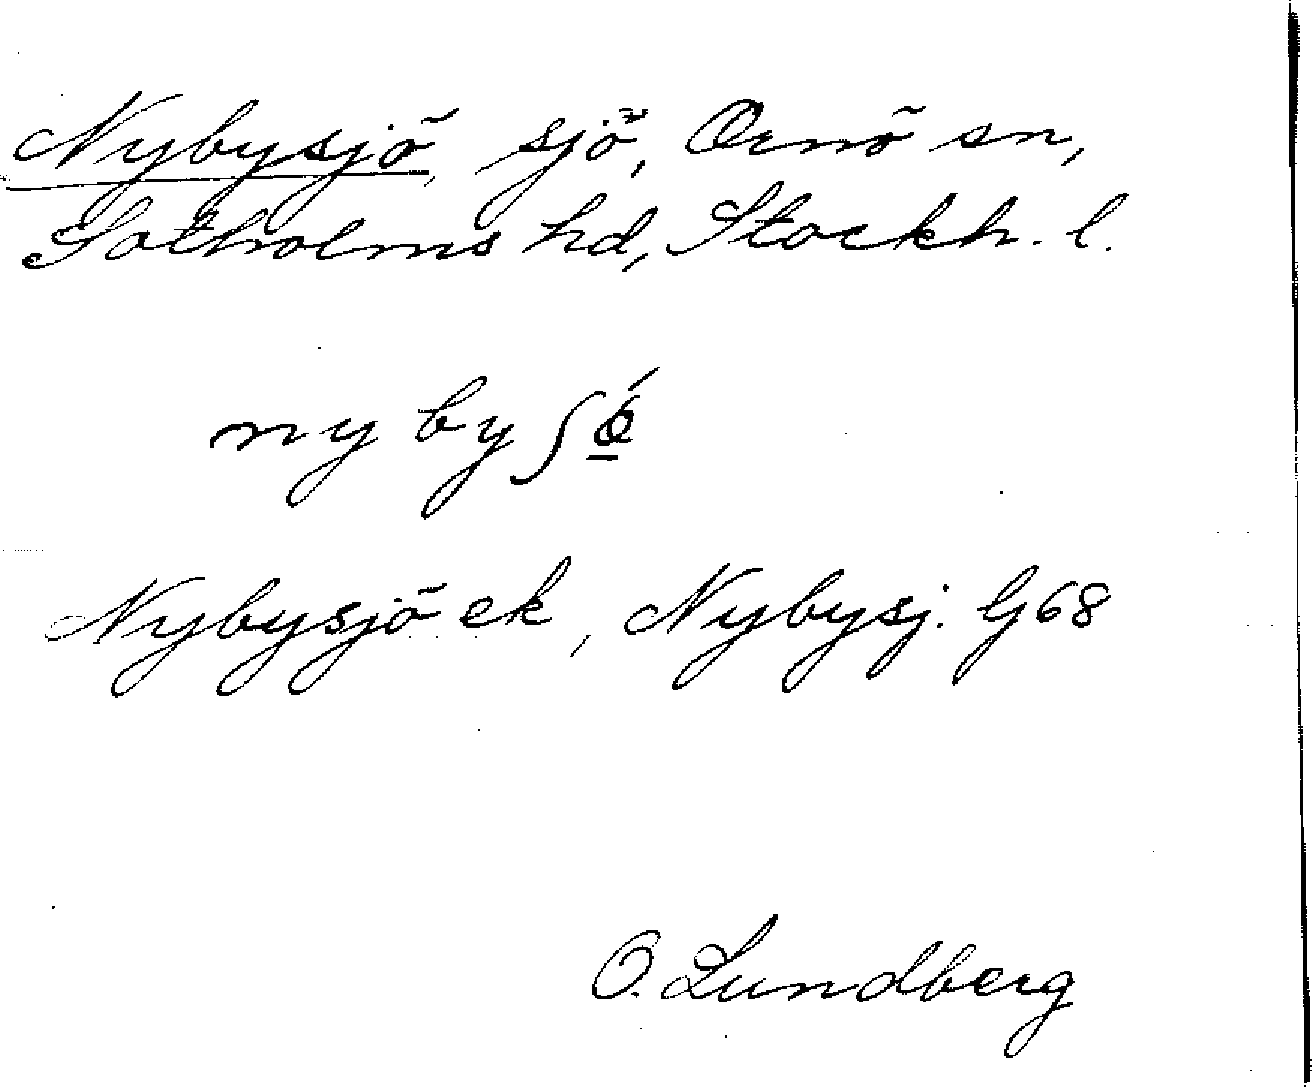 Nybysjö, sjö, Ornö sn,
Sotholms hd, Stockh. l.
ny by ʃǿ̱
Nybysjö ek, Nybysj. G68
O. Lundberg